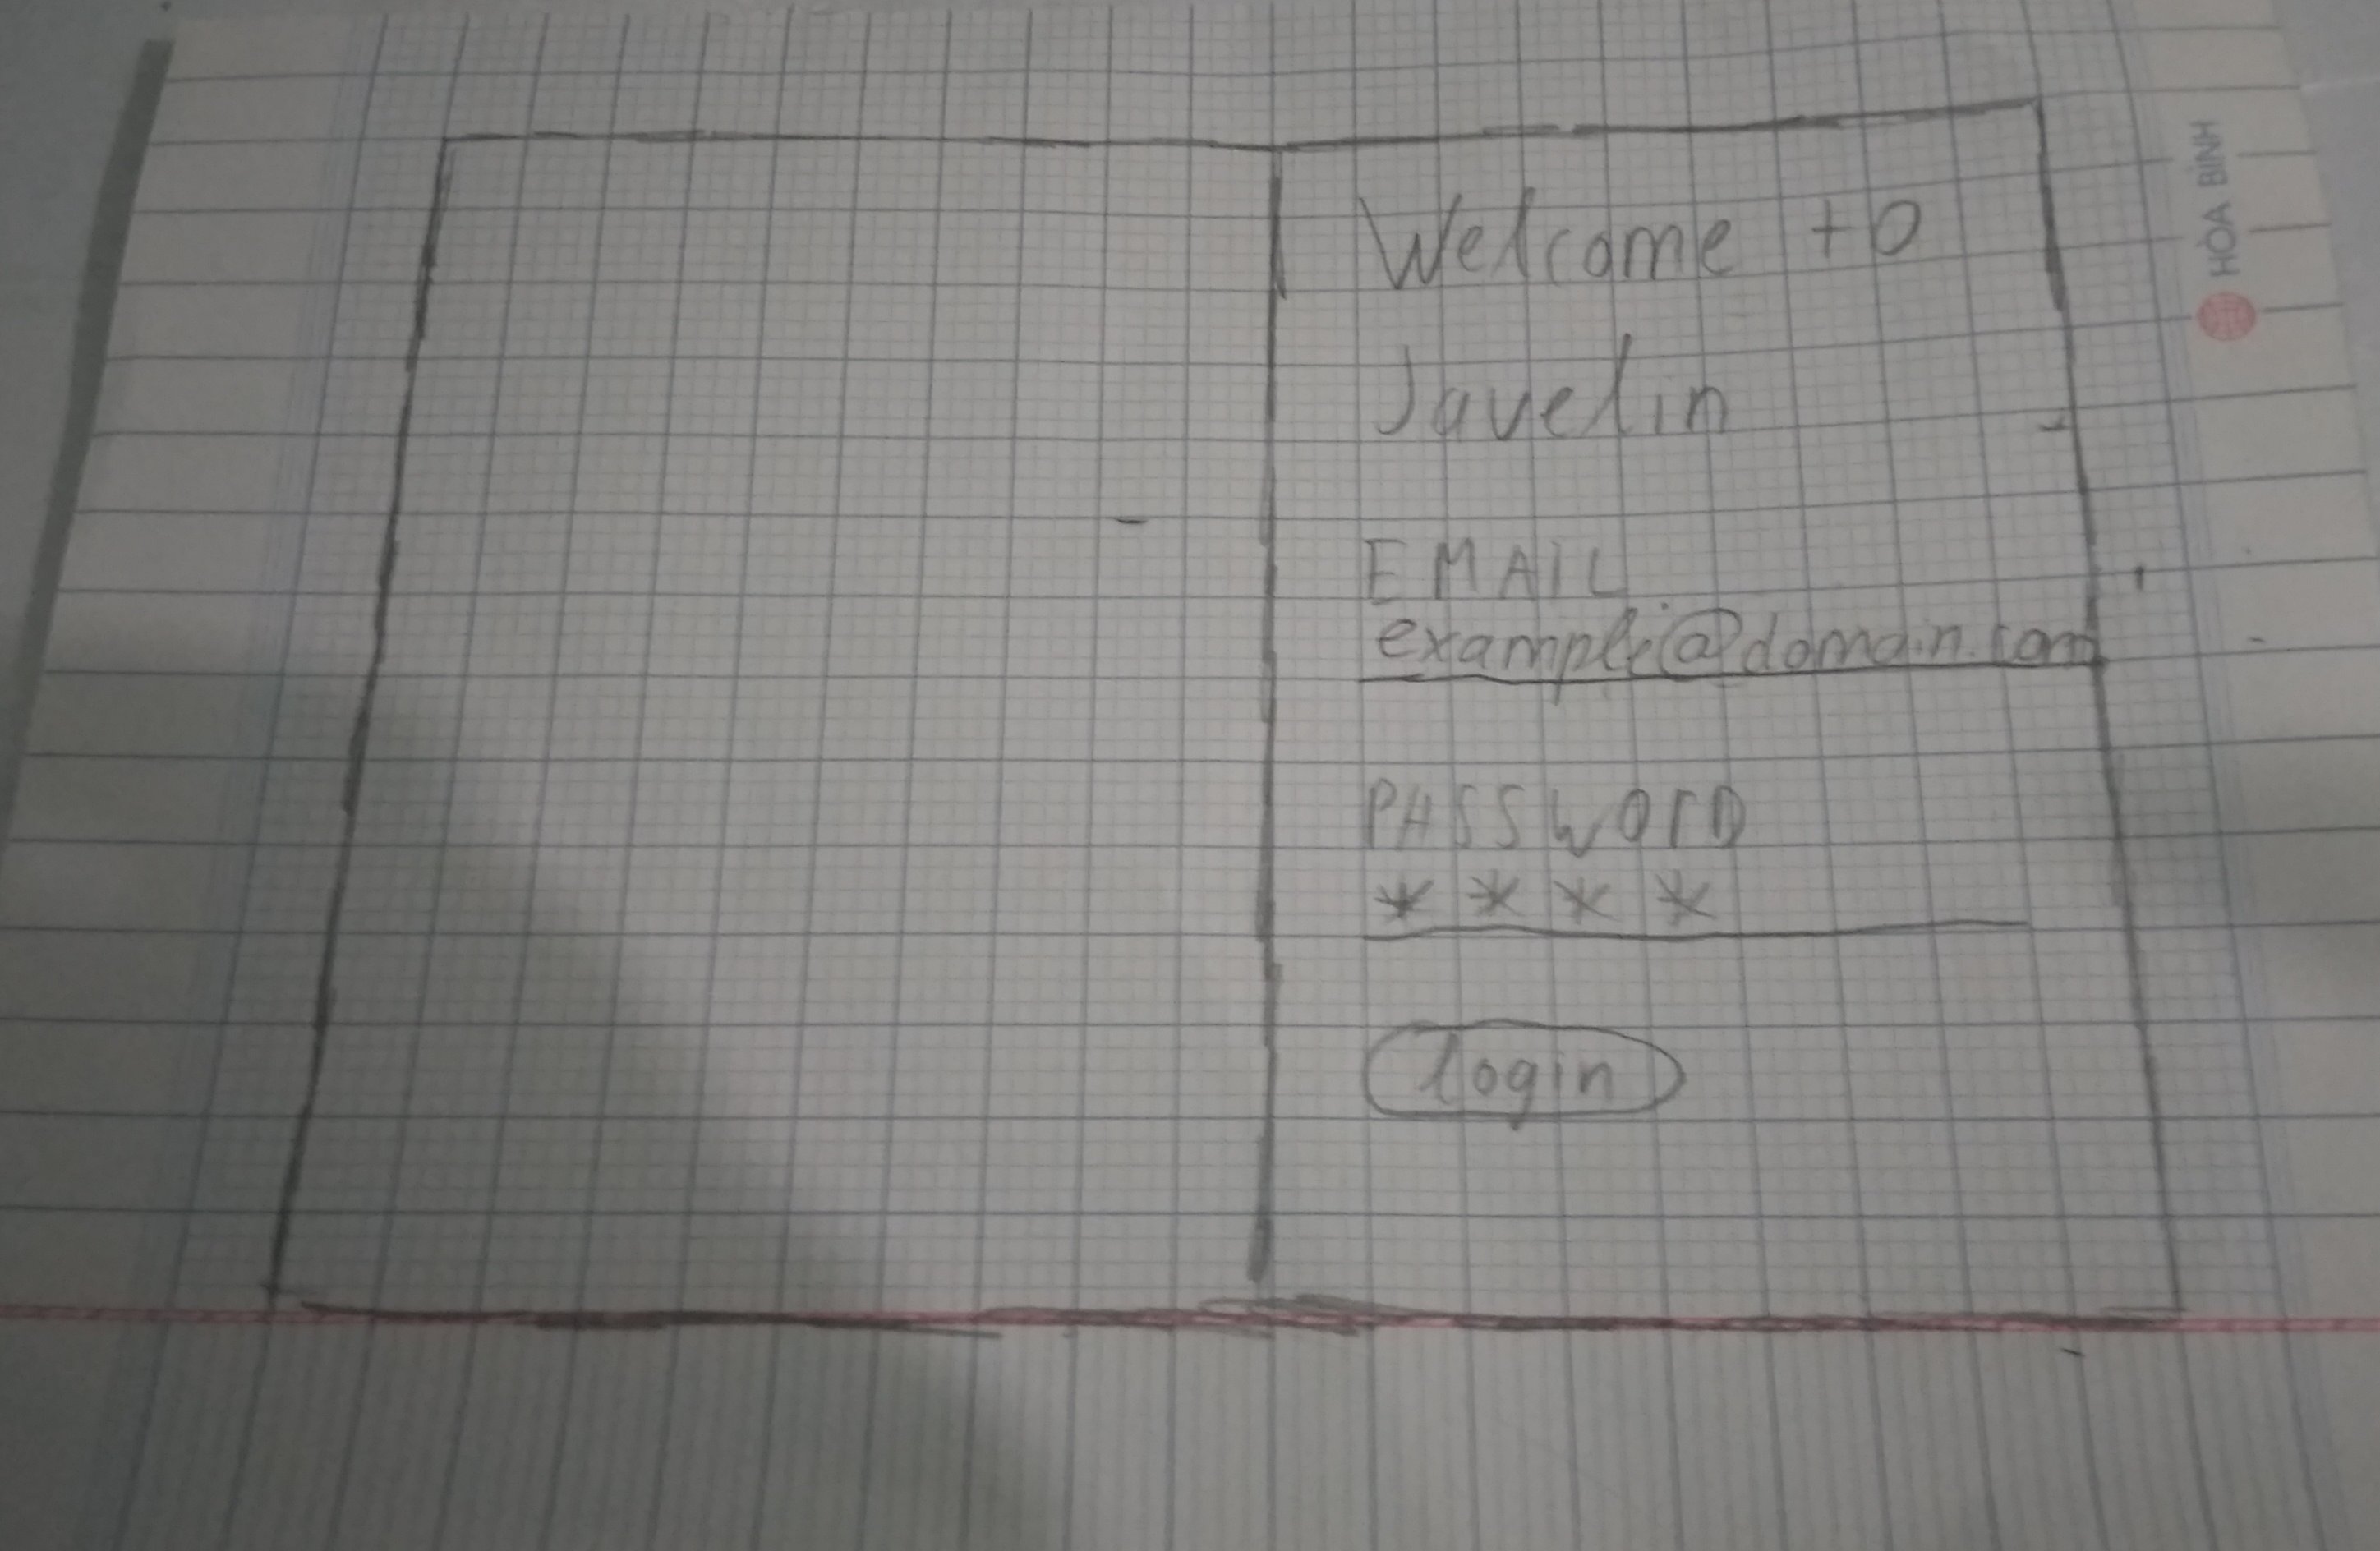 Welcome to
Javelin
EMAiL
example@domain.com
PASSWOrD
* * * *
login
HÒA BÌNH